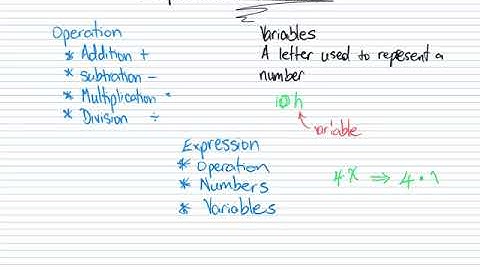 Operation
* Addition +
* subtration -
* Multiplication •
* Division ÷
Variables
A letter used to repesent a
number
10h
variable
Expression
* Operation
* Numbers
* Variables
4x ⇒ 4 •